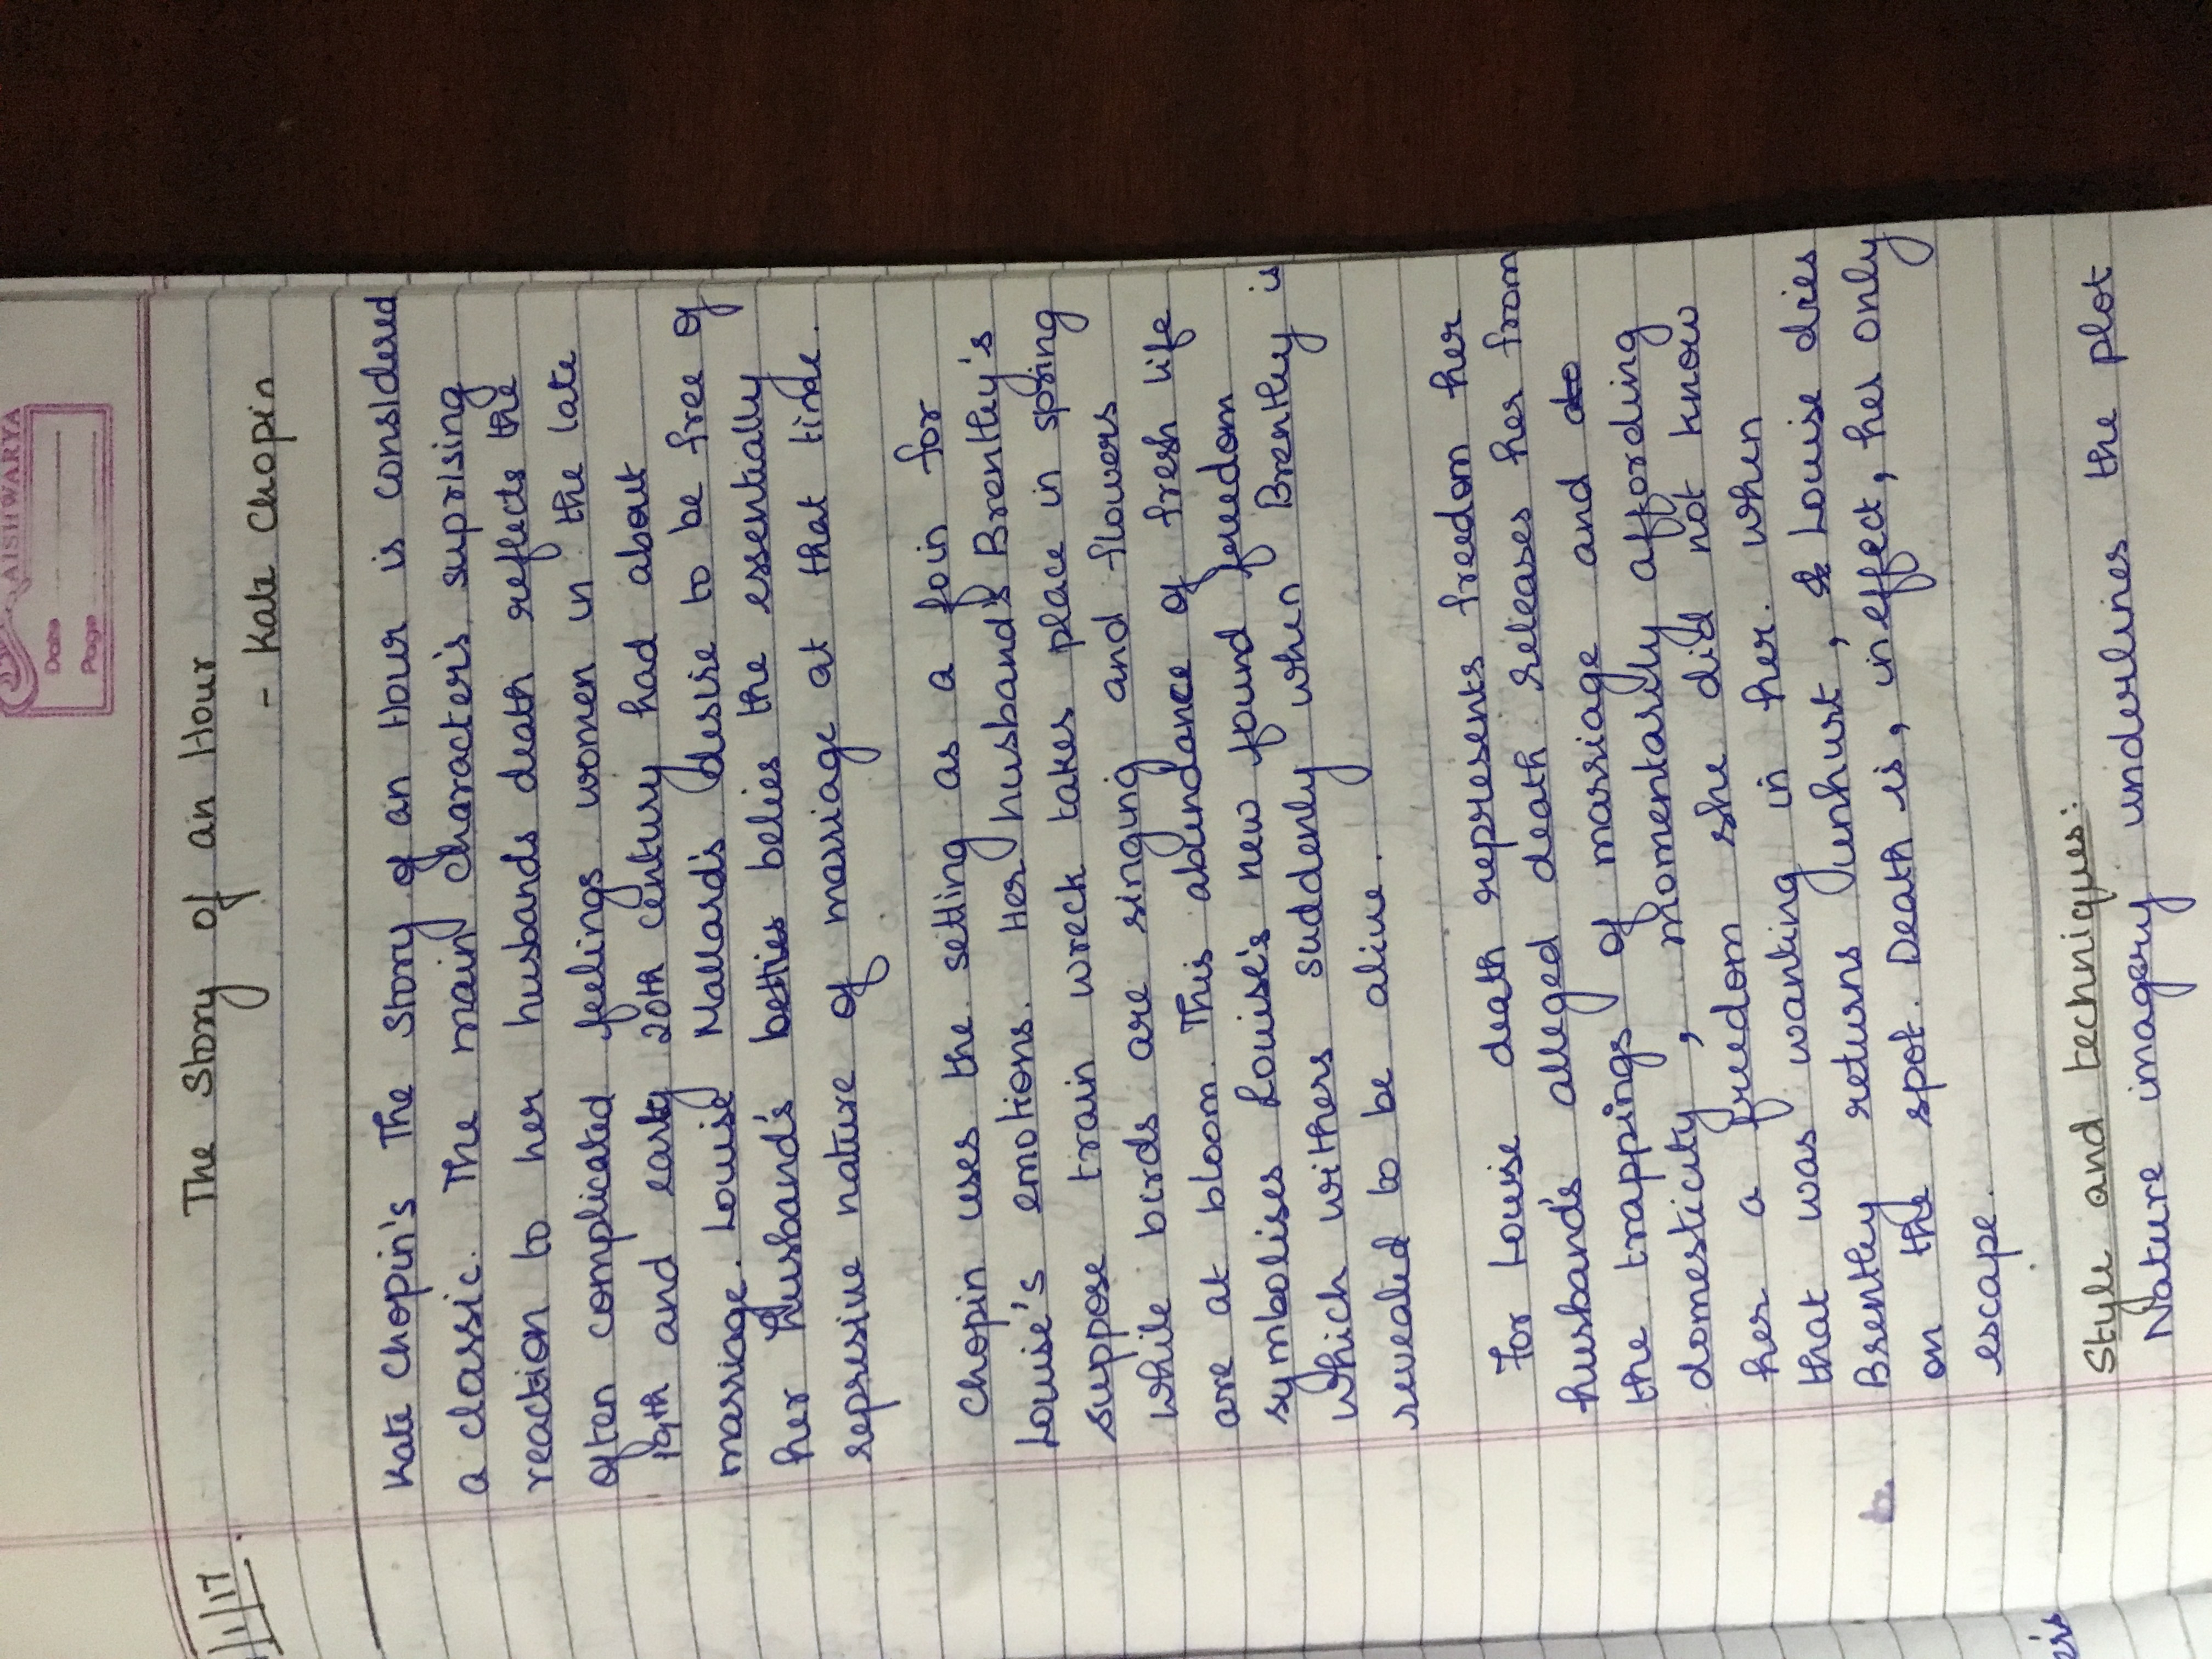 AISHWARYA
Date
Page
/1/17.
The Story of an Hour
- Kate Chopin
Kate Chopin's The Story of an Hour is considered
a classic. The main character's suprising
reaction to her husbands death reflects the
often complicated feelings women in the late
19th and early 20th century had about
marriage. Louise Mallard's desire to be free of
her husband's betties belies the essentially
represive nature of marriage at that time.
Chopin uses the setting as a foin for
Louise's emotions. Her husband's Brentley's
suppose train wreck takes place in spring
while birds are singing and flowers
are at bloom. This abundance of fresh life
symbolises Louise's new found freedom
which withers suddenly when Brentley is
revealed to be alive.
For Louise death represents freedom her
husband's alleged death releases her from
the trappings of marriage and do
domesticity, momentarily affording
her a freedom she did not know
that was wanting in her. when
Brentley returns unhurt, Louise dies
on the spot. Death is, in effect, her only
escape.
er's
Style and techniques:
Nature imagery underlines the plot